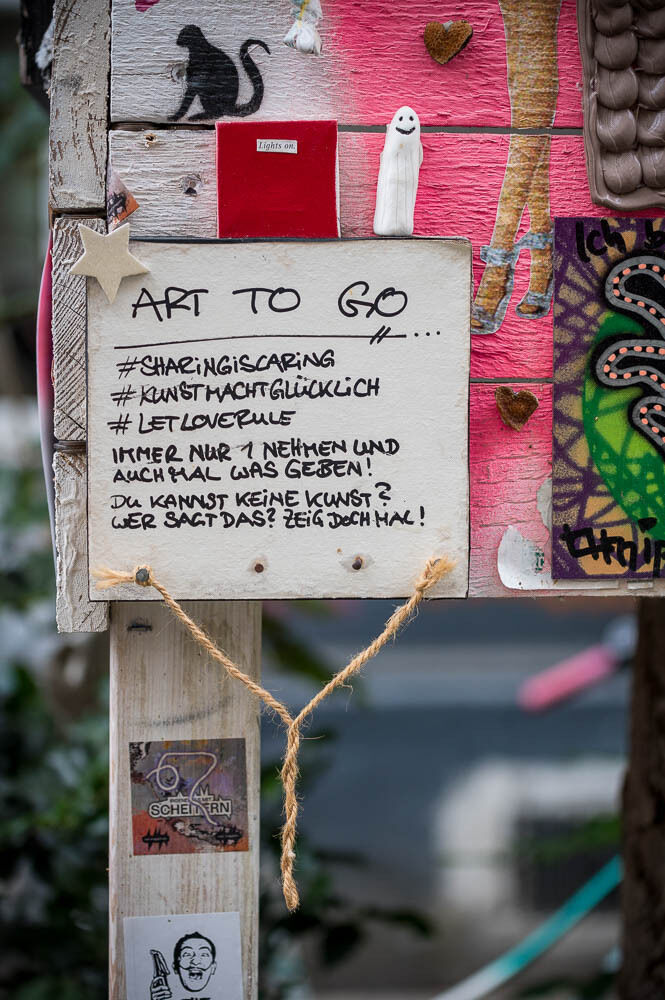 Lights on.
Ich b
ART TO GO
...
#SHARINGISCARING
#KUNSTMACHTGLÜCKLICH
#LETLOVERULE
IMMER NUR 1 NEHMEN UND
AUCH MAL WAS GEBEN!
DU KANNST KEINE KUNST?
WER SAGT DAS? ZEIG DOCH MAL!
SCHEITERN